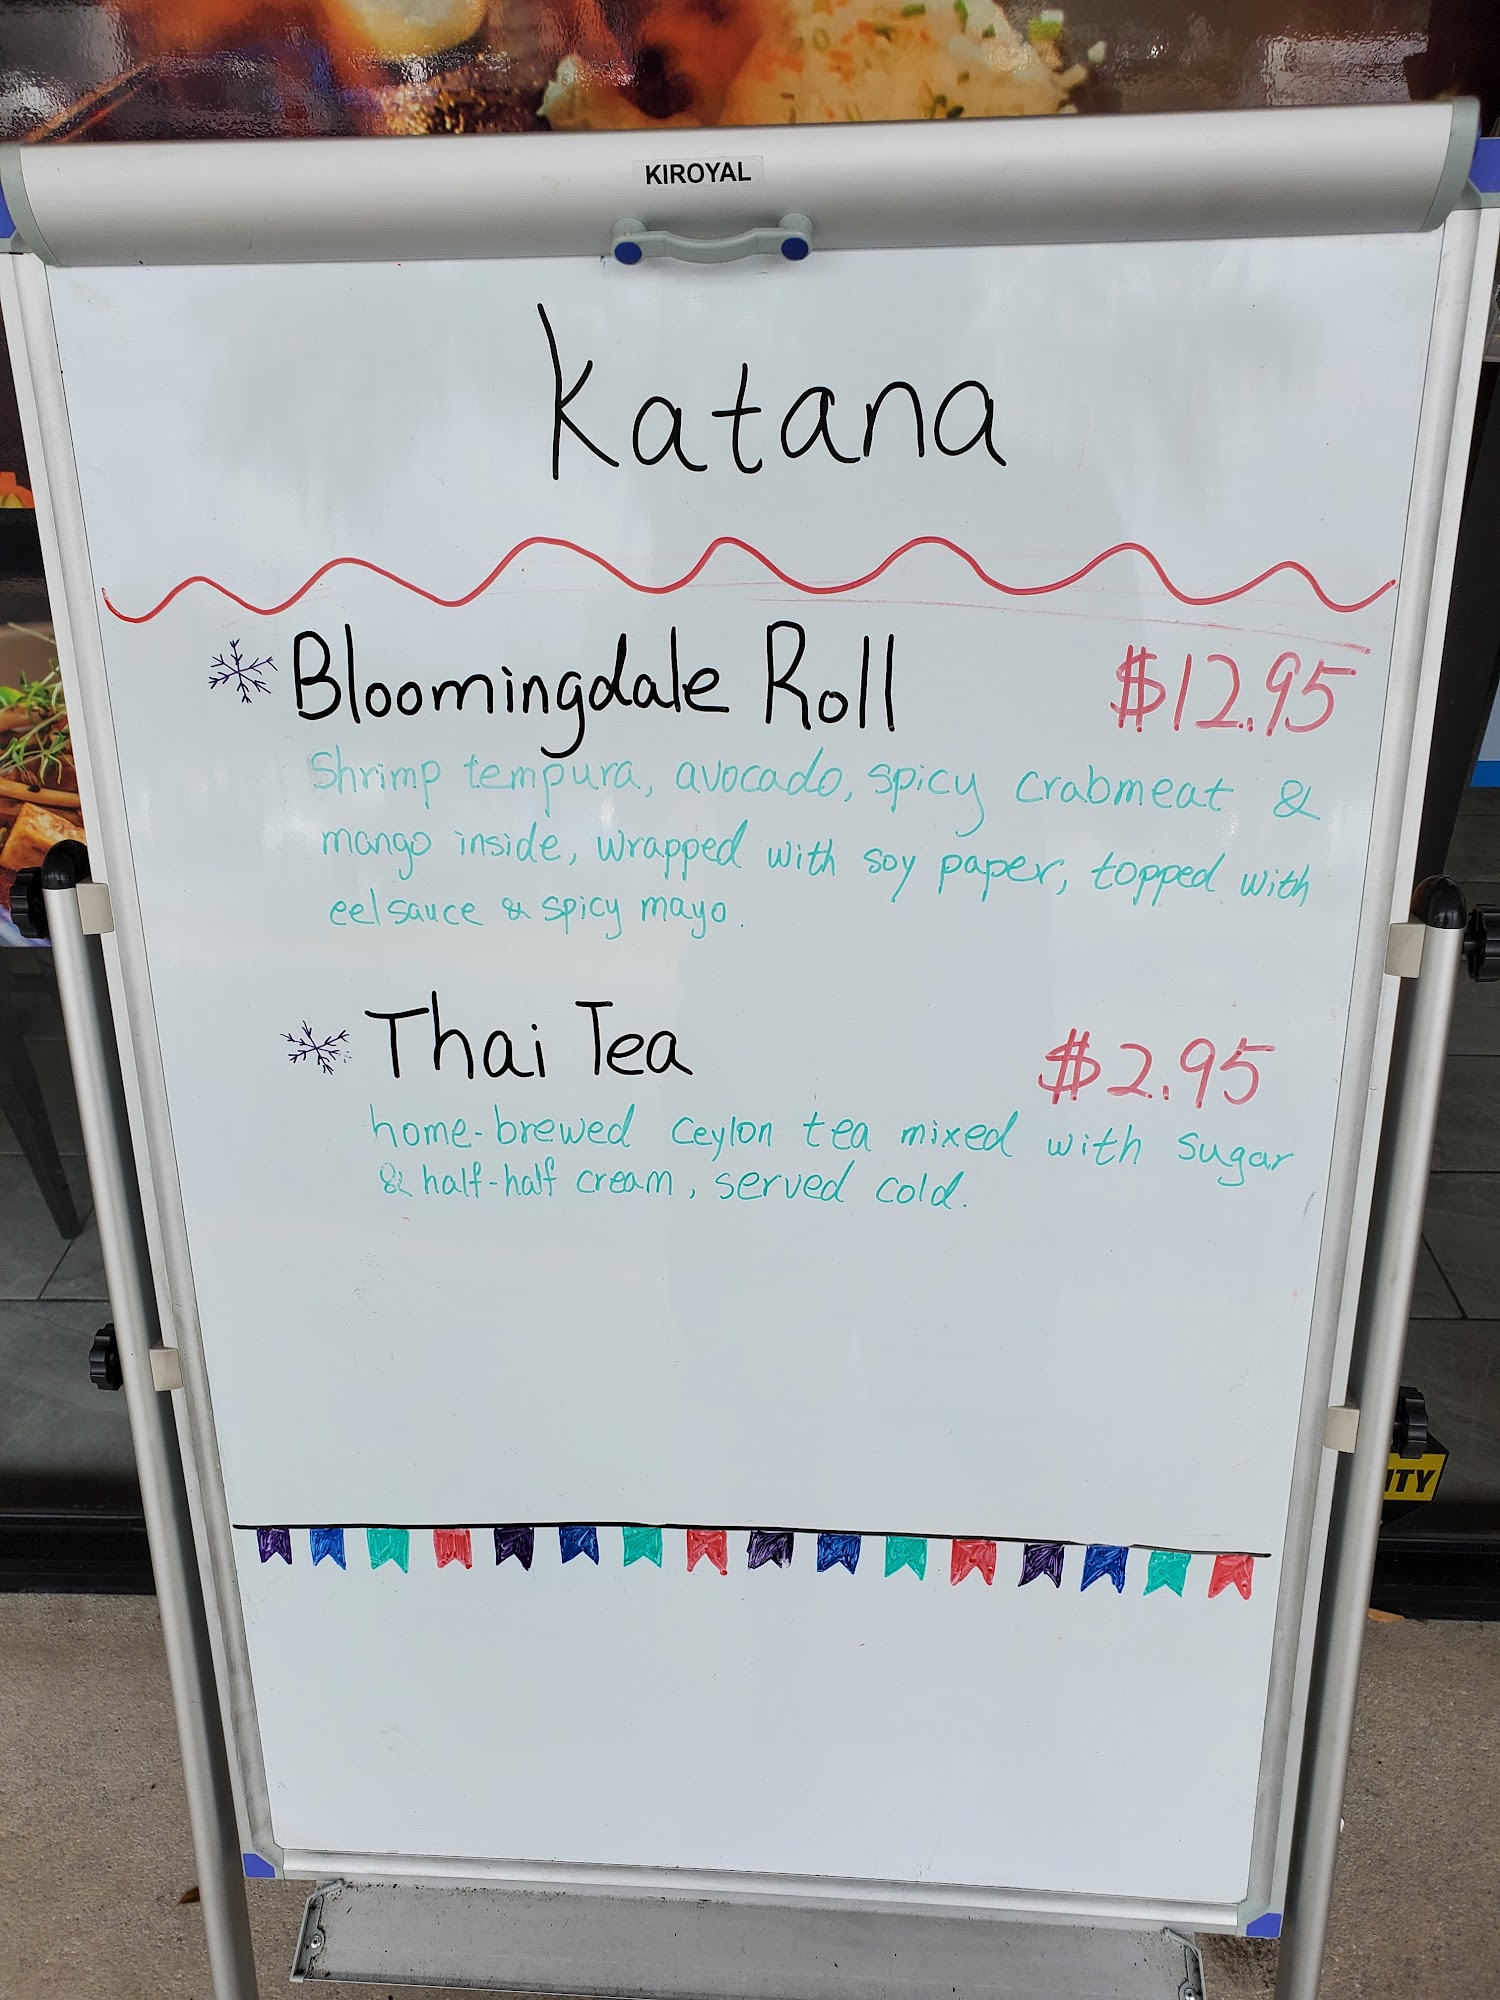 KIROYAL
Katana
Bloomingdale Roll $12.95
Shrimp tempura, avocado, spicy crabmeat &
mango inside, wrapped with soy paper, topped with
eel sauce & spicy mayo.
Thai Tea $2.95
home-brewed Ceylon tea mixed with sugar
& half-half cream, served cold.
ITY